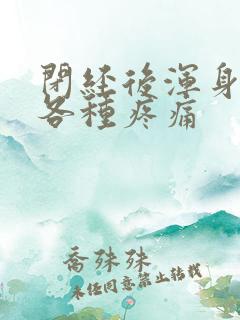 閉經後渾身
各種疼痛
喬殊殊
未經同意禁止轉載